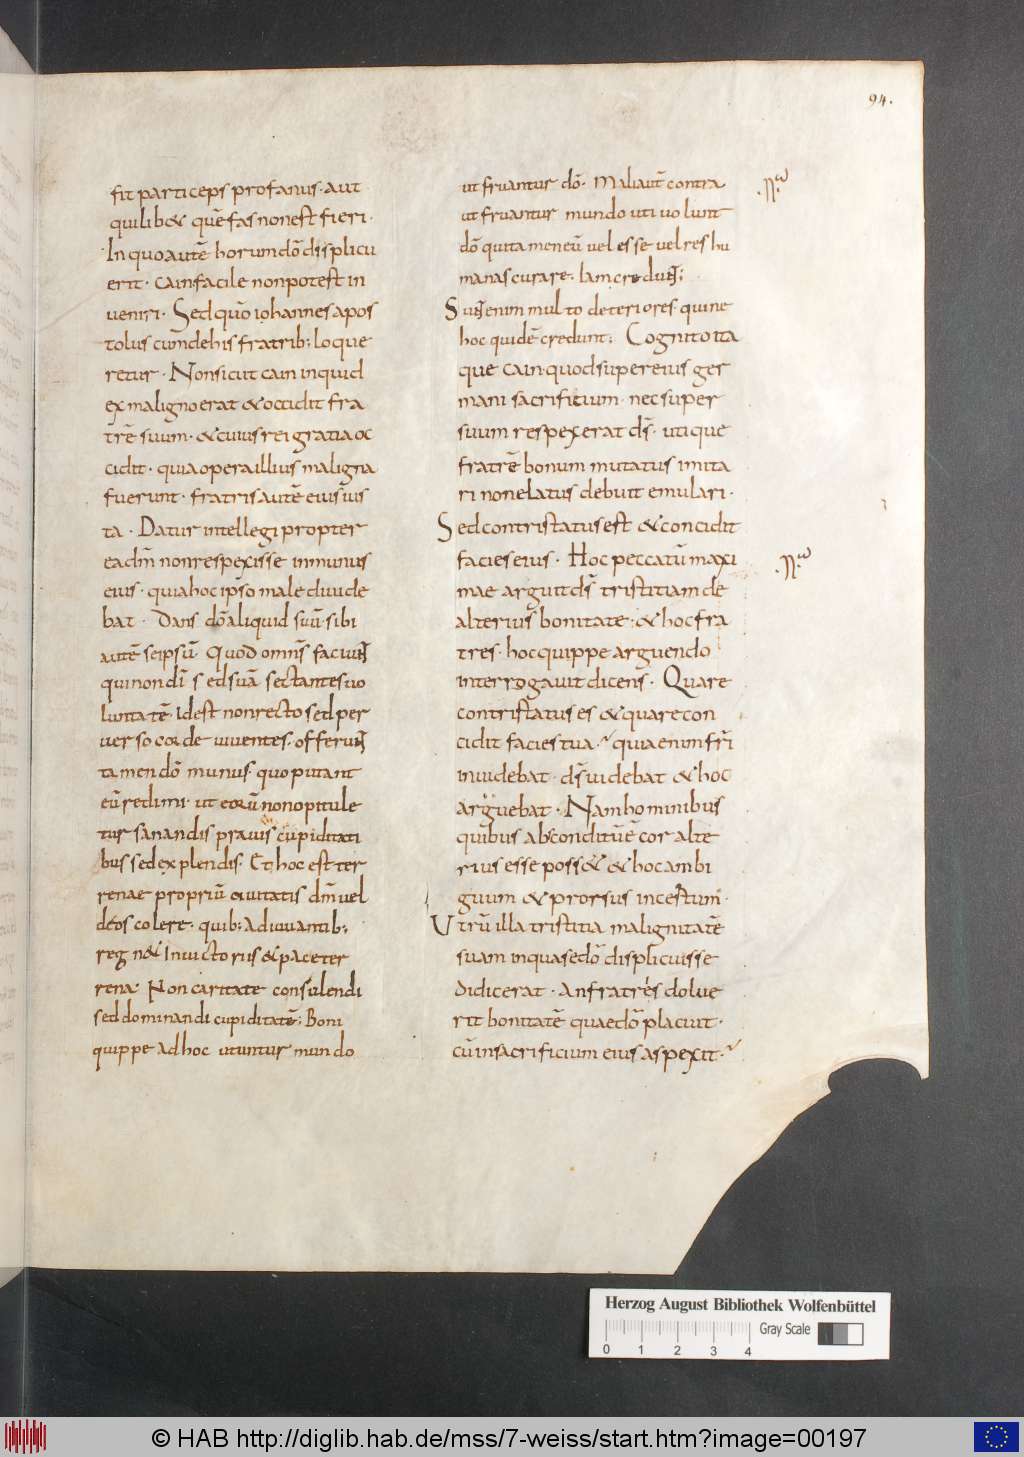 94.
fit particeps profanus· aut
quilib& quē fas non est fieri·
In quo autē horum dō displicu
erit· cain facile non potest in
veniri· Sed quō iohannes apos
tolus cum de his fratrib; loque
retur· Non sicut cain inquid
ex maligno erat & occidit fra
trē suum· & cuius rei gratia oc
cidit· quia opera illius maligna
fuerunt· fratris autē eius ius
ta· Datur intellegi propter
ea dm̄ non respexisse in munus
eius· quia hoc ipso male divide
bat· Dans dō aliquid suū· sibi
autē seipsū· Quod omns̄ faciunt
qui non dī sed suā sectantes vo
luntatē· Idest non recto sed per
verso corde viventes· offerunt
tamen dō munus· quo putant
eū redimi· ut eorū non opitule
tur sanandis pravis cupiditati
bus sed explendis· Et hoc est ter
renae propriū civitatis dm̄ vel
deos colere· quib; adiuvantib;
regn& In victoriis & pace ter
rena· Non caritate consulendi
sed dominandi cupiditatē; Boni
quippe ad hoc utuntur mundo
ut fruantur dō· Mali aut̄ contra
ut fruantur mundo uti volunt
dō qui tamen eū vel esse vel res hu
manas curare· Iam credunt;
Sunt enim multo deteriores· qui ne
hoc quidē credunt; Cognito ita
que cain· quod super eius ger
mani sacrificium· nec super
suum respexerat ds̄· utique
fratrē bonum mutatus imita
ri non elatus debuit emulari·
Sed contristatus est & concidit
facies eius· Hoc peccatū maxi
mae arguit ds̄ tristitiam de
alterius bonitate; & hoc fra
tres· hoc quippe arguendo
interrogavit dicens· Quare
contristatus es & quare con
cidit facies tua? quia enim frī
invidebat· ds̄ videbat & hoc
arguebat· Nam hominibus
quibus absconditū ē cor alte
rius esse poss& & hoc ambi
guum & prorsus incertum·
Utrū illa tristitia malignitatē
suam in qua se dō displicuisse
didicerat· An fratris dolue
rit bonitatē quae dō placuit·
cū in sacrificium eius aspexit·?
Herzog August Bibliothek Wolfenbüttel
Gray Scale
0 1 2 3 4
© HAB http://diglib.hab.de/mss/7-weiss/start.htm?image=00197